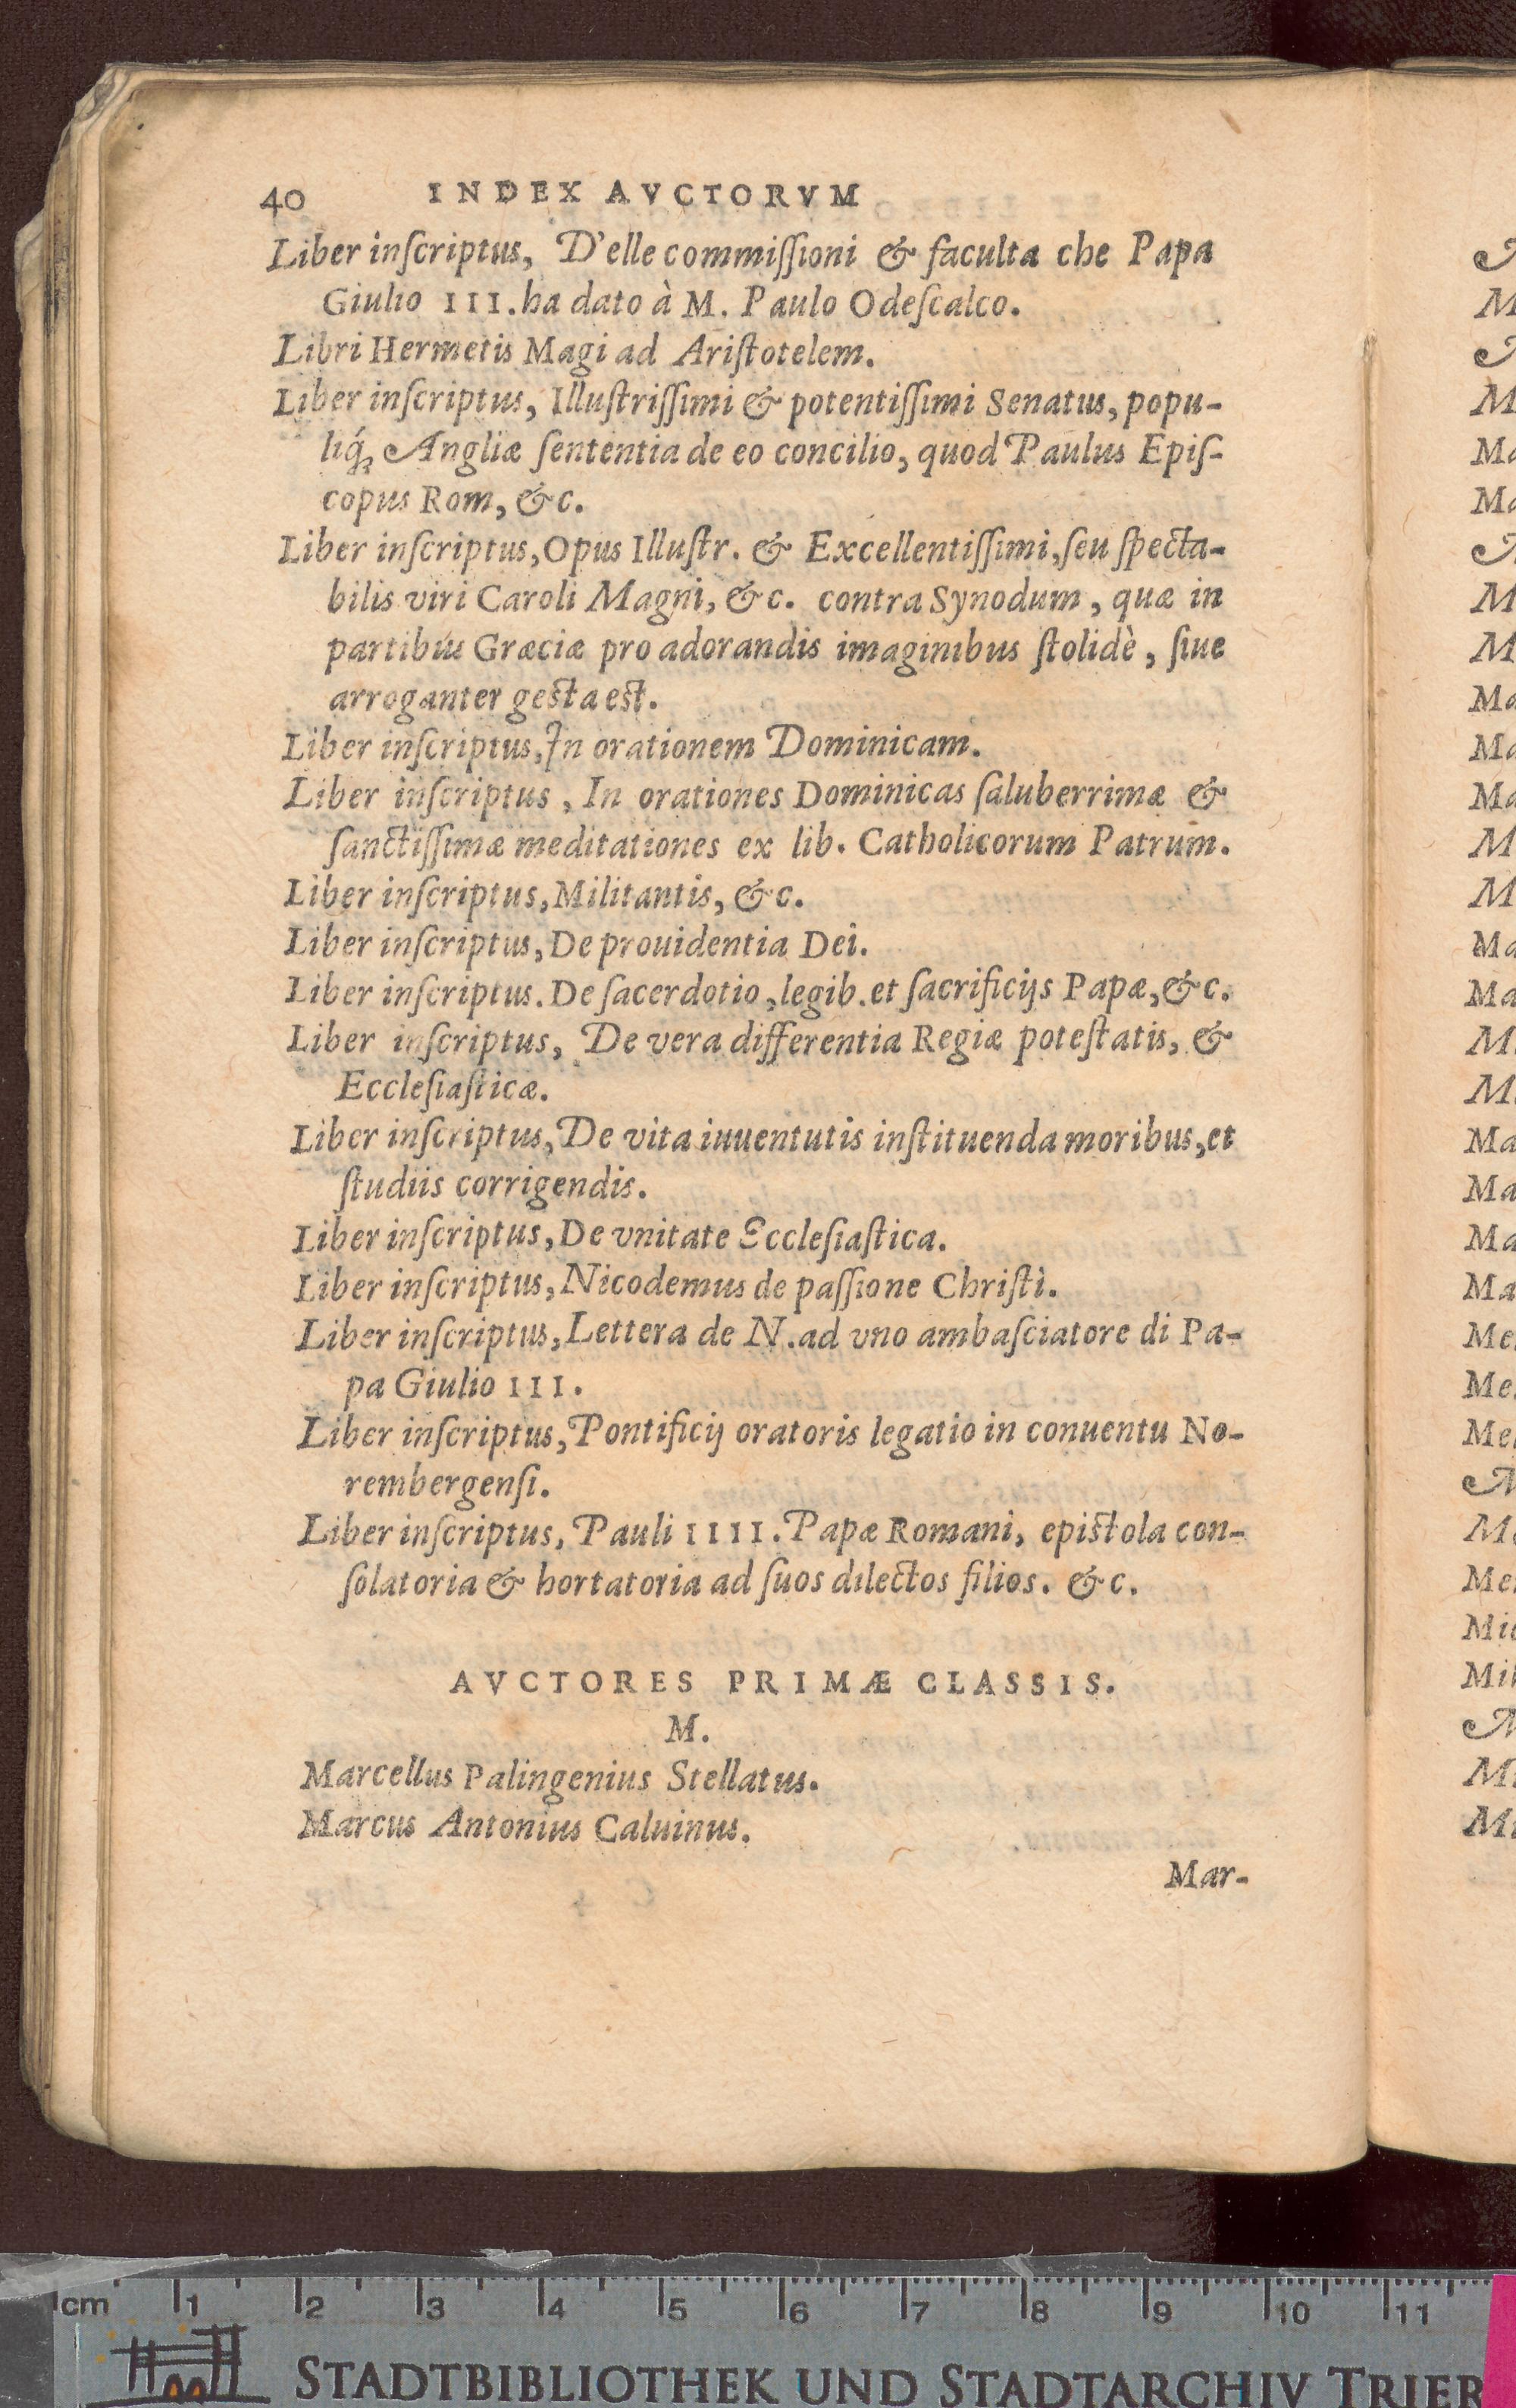 40 INDEX AVCTORVM
Liber inſcriptus, D'elle commiſſioni & faculta che Papa
Giulio III. ha dato à M. Paulo Odeſcalco.
Libri Hermetis Magi ad Ariſtotelem.
Liber inſcriptus, Illuſtriſſimi & potentiſſimi Senatus, popu-
liq́ꝫ Angliæ ſententia de eo concilio, quod Paulus Epiſ-
copus Rom, &c.
Liber inſcriptus, Opus Illuſtr. & Excellentiſſimi, ſeu ſpecta-
bilis viri Caroli Magni, &c. contra Synodum, quæ in
partibus Græciæ pro adorandis imaginibus ſtolidè, ſiue
arroganter geſta eſt.
Liber inſcriptus, In orationem Dominicam.
Liber inſcriptus, In orationes Dominicas ſaluberrimæ &
ſanctiſſimæ meditationes ex lib. Catholicorum Patrum.
Liber inſcriptus, Militantis, &c.
Liber inſcriptus, De prouidentia Dei.
Liber inſcriptus. De ſacerdotio, legib. et ſacrificijs Papæ, &c.
Liber inſcriptus, De vera differentia Regiæ poteſtatis, &
Eccleſiaſticæ.
Liber inſcriptus, De vita iuuentutis inſtituenda moribus, et
ſtudiis corrigendis.
Liber inſcriptus, De vnitate Eccleſiaſtica.
Liber inſcriptus, Nicodemus de paſſione Chriſti.
Liber inſcriptus, Lettera de N. ad vno ambaſciatore di Pa-
pa Giulio III.
Liber inſcriptus, Pontificij oratoris legatio in conuentu No-
rembergenſi.
Liber inſcriptus, Pauli IIII. Papæ Romani, epiſtola con-
ſolatoria & hortatoria ad ſuos dilectos filios. &c.
AVCTORES PRIMÆ CLASSIS.
M.
Marcellus Palingenius Stellatus.
Marcus Antonius Caluinus.
Mar-
cm 1 2 3 4 5 6 7 8 9 10 11
STADTBIBLIOTHEK UND STADTARCHIV TRIER